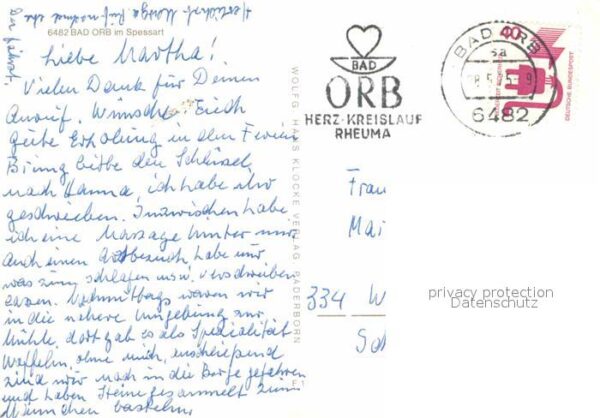 6482 BAD ORB im Spessart
Liebe Martha!
Vielen Dank für Deinen
Anruf. Wünsche Euch
gute Erholung in den Ferien
Bring bitte den Schlüssel
nach Hanna, ich habe ihr
geschrieben. Inzwischen habe
ich eine Massage hinter mir
Auch einen Arztbesuch habe mir
was zum schlafen usw. verschreiben
lassen. Nachmittags waren wir
in die nähere Umgebung zur
Mühle, dort gab es als Spezialität
Waffeln, ohne mich, anschließend
sind wir noch in die Berge gefahren
und haben Steine gesammelt zum
Männchen basteln.
der fährt.
WOLFG. HANS KLOCKE VERLAG PADERBORN
F 1
BAD
ORB
HERZ·KREISLAUF
RHEUMA
BAD ORB
sa
6482
40
DEUTSCHE BUNDESPOST
Frau
Mai
334 W
privacy protection
Datenschutz